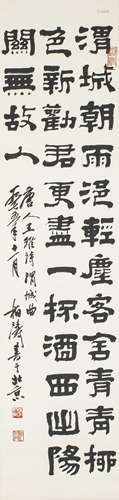 渭城朝雨浥輕塵客舍青青柳
色新勸君更盡一杯酒西出陽
關無故人
唐人王維詩渭城曲
年十一月 柏濤書于北京